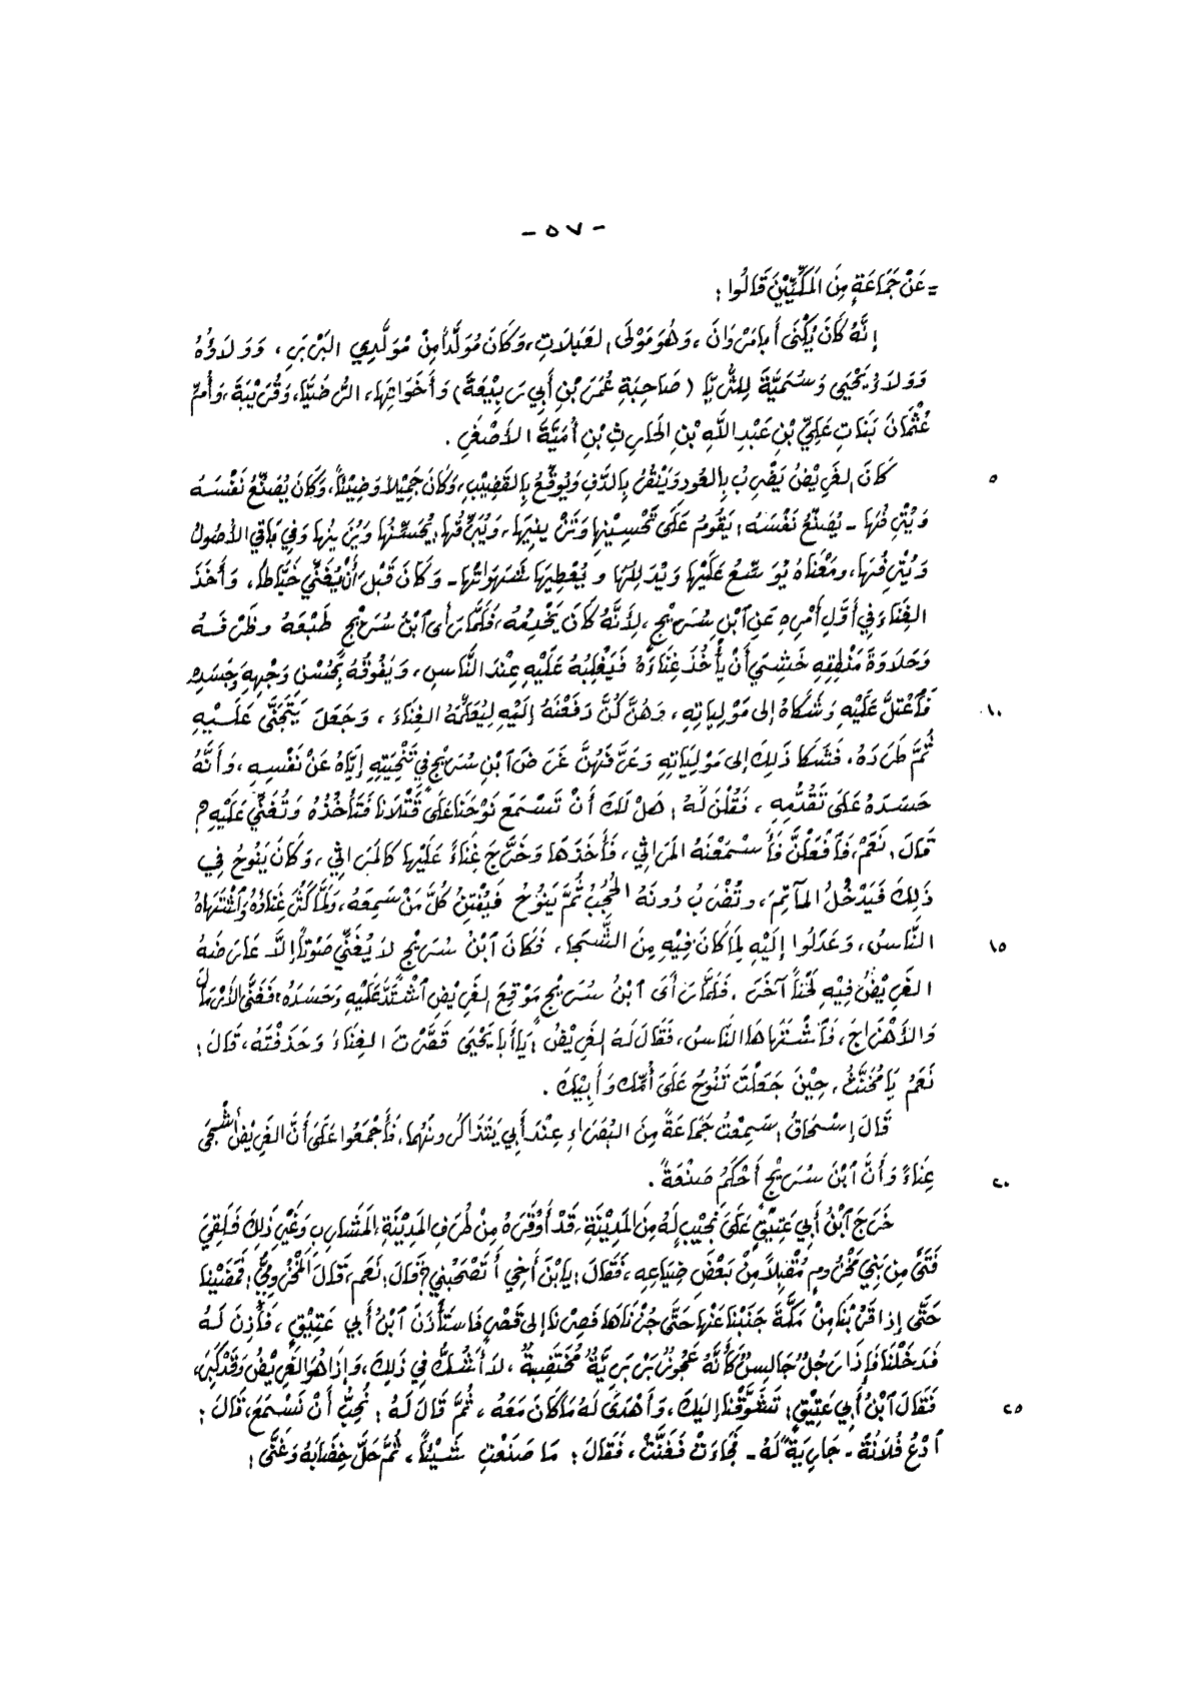 - ٥٧ -
= عَنْ جَمَاعَةٍ مِنَ المَكِّيِّيْنَ قَالُوا :
إِنَّهُ كَانَ يُكْنَى أَبامَرْوَانَ ، وَهُوَ مَوْلَى العَبَلَاتِ ، وَكَانَ مُوَلَّداً مِنْ مُوَلَّدِي البَرْبَرِ ، وَوَلَاؤُهُ
وَوَلاَؤُ يَحْيَى وَسُمَيَّةَ لِلثُّرَيَّا ( صَاحِبَةِ عُمَرَ بْنِ أَبِي رَبِيْعَةَ ) وَأَخَوَاتِهَا ، الرُّضَيَّا ، وَقُرَيْبَةَ ، وَأُمِّ
عُثْمَانَ بَنَاتِ عَلِيِّ بْنِ عَبْدِ اللَّهِ بْنِ الحَارِثِ بْنِ أُمَيَّةَ الأَصْغَرِ .
كَانَ الغَرِيْضُ يَضْرِبُ بِالعُودِ وَيَنْقُرُ بِالدُّفِ وَيُوقِّعُ بِالقَضِيْبِ ، وَكَانَ جَمِيْلاً وَضِيْئاً ، وَكَانَ يُصَنِّعُ نَفْسَهُ ٥
وَيُتْرِفُهَا - يُصَنِّعُ نَفْسَهُ : يَقُومُ عَلَى تَحْسِيْنِهَا وَتَزْيِيْنِهَا ، وَيُبَرِّقُهَا : يُحَسِّنُهَا وَيُزَيِّنُهَا وَفِي بَاقِي الأُصُولُ
وَيُتْرِفُهَا ، ومَعْنَاهُ يُوَسِّعُ عَلَيْهَا وَيُدَلِّلُهَا و يُعْطِيْهَا شَهَوَاتِهَا - وَكَانَ قَبْلَ أَنْ يُغَنِّي خَيَّاطاً ، وَأَخَذَ
الغِنَاءَ فِي أَوَّلِ أَمْرِهِ عَنِ ٱبْنِ سُرَيْجٍ ، لِأَنَّهُ كَانَ يَخْدِمُهُ ، فَلَمَّا رَأى ٱبْنُ سُرَيْجٍ طَبْعَهُ وظَرْفَهُ
وَحَلاَوَةَ مَنْطِقِهِ خَشِيَ أَنْ يَأْخُذَ غِنَاءَهُ فَيَغْلِبَهُ عَلَيْهِ عِنْدَ النَّاسِ ، وَيَفُوْقَهُ بِحُسْنِ وَجْهِهِ وَجَسَدِهِ
فَٱعْتَلَّ عَلَيْهِ وَشَكَاهُ إلى مَوْلِيَاتِهِ ، وَهُنَّ كُنَّ دَفَعْنَهُ إلَيْهِ لِيُعَلِّمَهُ الغِنَاءَ ، وَجَعَلَ يَتَجَنَّى عَلَيْهِ ١٠
ثُمَّ طَرَدَهُ ، فَشَكَا ذَلِكَ إلى مَوْلِيَاتِهِ وَعَرَّفَهُنَّ غَرَضَ ٱبْنِ سُرَيْجٍ فِي تَنْحِيَتِهِ إيَّاهُ عَنْ نَفْسِهِ ، وَأَنَّهُ
حَسَدَهُ عَلَى تَقَدُّمِهِ ، فَقُلْنَ لَهُ : هَلْ لَكَ أَنْ تَسْمَعَ نَوْحَنَا عَلَى قَتْلَانَا فَتَأْخُذُهُ وَتُغَنِّي عَلَيْهِ ؟
قَالَ : نَعَمْ ، فَٱفْعَلْنَ فَأَسْمَعْنَهُ المَرَاثِي ، فَأَخَذَهَا وَخَرَّجَ غِنَاءً عَلَيْهَا كَالمَرَاثِي ، وَكَانَ يَنُوحُ فِي
ذَلِكَ فَيَدْخُلُ المَآتِمَ ، وتُضْرَبُ دُونَهُ الحُجُبُ ثُمَّ يَنُوحُ فَيُفْتِنُ كُلَّ مَنْ سَمِعَهُ ، وَلَمَّا كَثُرَ غِنَاؤُهُ وَٱشْتَهَاهُ
النَّاسُ ، وَعَدَلُوا إِلَيْهِ لِمَا كَانَ فِيْهِ مِنَ الشَّجَا ، فَكَانَ ٱبْنُ سُرَيْجٍ لاَ يُغَنِّي صَوْتاً إلاَّ عَارَضَهُ ١٥
الغَرِيْضُ فِيْهِ لَحْناً آخَرَ ، فَلَمَّا رَأَى ٱبْنُ سُرَيْجٍ مَوْقِعَ الغَرِيْضِ ٱشْتَدَّ عَلَيْهِ وَحَسَدَهُ ، فَغَنَّى الأَرْمَالَ
وَالأَهْزَاجَ ، فَٱشْتَهَاهَا النَّاسُ ، فَقَالَ لَهُ الغَرِيْضُ : يَا أَبَا يَحْيَى قَصَّرْتَ الغِنَاءَ وَحَذَفْتَهُ ، قَالَ :
نَعَمْ يَا مُخَنَّثُ ، حِيْنَ جَعَلْتَ تَنُوحُ عَلَى أُمِّكَ وَأَبِيْكَ .
قَالَ إِسْحَاقُ : سَمِعْتُ جَمَاعَةً مِنَ البُصَرَاءِ عِنْدَ أَبِي يَتَذَاكَرُونَهُمَا ، فَأَجْمَعُوا عَلَى أَنَّ الغَرِيْضَ أَشْجَى
غِنَاءً وَأَنَّ ٱبْنَ سُرَيْجٍ أَحْكَمُ صَنْعَةً . ٢٠
خَرَجَ ٱبْنُ أَبِي عَتِيْقٍ عَلَى نَجِيْبٍ لَهُ مِنَ المَدِيْنَةِ ، قَدْ أَوْقَرَهُ مِنْ طُرَفِ المَدِيْنَةِ ، المَشَارِبِ وَغَيْرِ ذَلِكَ فَلَقِيَ
فَتًى مِنْ بَنِي مَخْزُومٍ مُقْبِلاً مِنْ بَعْضِ ضِيَاعِهِ ، فَقَالَ : يَا ابْنَ أَخِي أَتَصْحَبُنِي ؟ قَالَ : نَعَم ، قَالَ المَخْزُومِيُّ : فَمَضَيْنَا
حَتَّى إذا قَرُبْنَا مِنْ مَكَّةَ جَنَبْنَا عَنْهَا حَتَّى جُزْنَاهَا فَصِرْنَا إلى قَصْرٍ فَاسْتَأْذَنَ ٱبْنُ أَبي عَتِيْقٍ ، فَأَذِنَ لَهُ
فَدَخَلْنَا فَإِذَا رَجُلٌ جَالِسٌ كَأَنَّهُ عَجُوزٌ بَرْبَرِيَّةٌ مُخْتَضِبَةٌ ، لاَ أَشُكُّ فِي ذَلِكَ ، وَإِذَا هُوَ الغَرِيْضُ وَقَدْ كَبِرَ ،
فَقَالَ ٱبْنُ أَبِي عَتِيْقٍ : تَشَوَّقْنَا إلَيْكَ ، وَأَهْدَى لَهُ مَا كَانَ مَعَهُ ، ثُمَّ قَالَ لَهُ : نُحِبُّ أَنْ نَسْمَعَ ، قَالَ : ٢٥
ٱدْعُ فُلاَنَةَ - جَارِيَةً لَهُ - فَجَاءَتْ فَغَنَّتْ ، فَقَالَ : مَا صَنَعْتِ شَيْئاً ، ثُمَّ حَلَّ خِضَابَهُ وَغَنَّى :